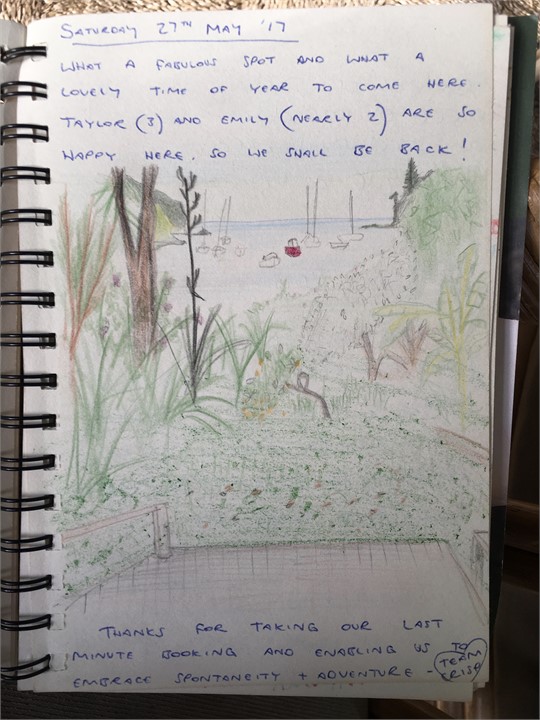 SATURDAY 27TH MAY '17
WHAT A FABULOUS SPOT AND WHAT A
LOVELY TIME OF YEAR TO COME HERE.
TAYLOR (3) AND EMILY (NEARLY 2) ARE SO
HAPPY HERE. SO WE SHALL BE BACK!
THANKS FOR TAKING OUR LAST
MINUTE BOOKING AND ENABLING US TO
EMBRACE SPONTANEITY + ADVENTURE -
TEAM
CRISP